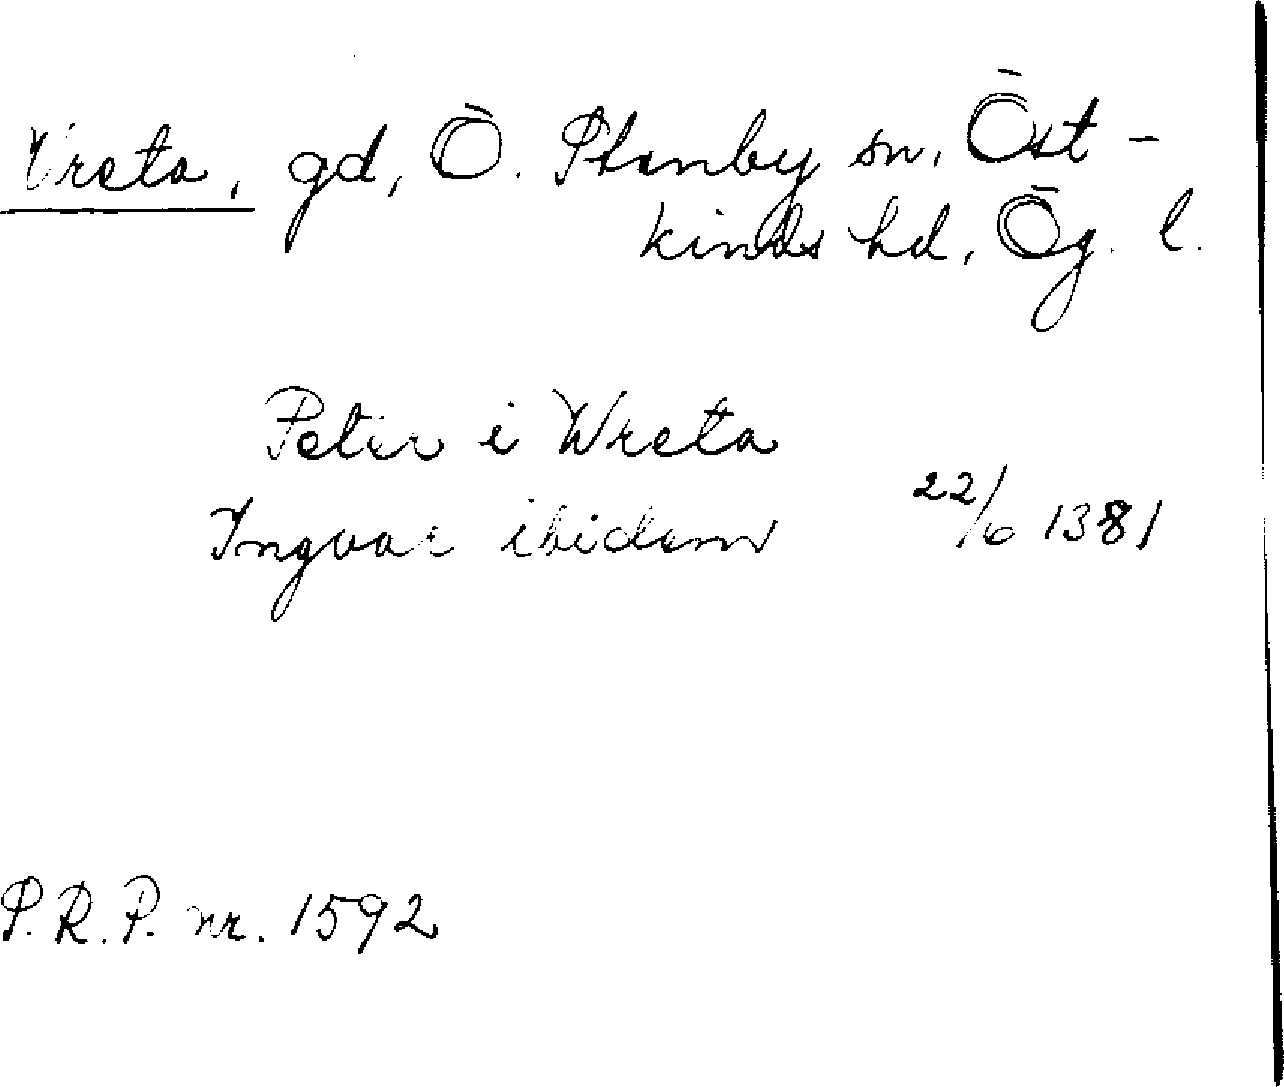 Vreta, gd, Ö. Stenby sn, Öst-
kinds hd, Ög. l.
Peter i Wreta
Ingvar ibidem 22/6 1381
P.R.P. nr. 1592